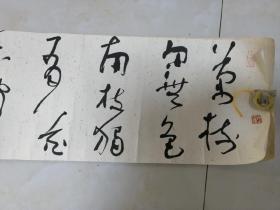 萬樹
寒無色
南枝獨
有花